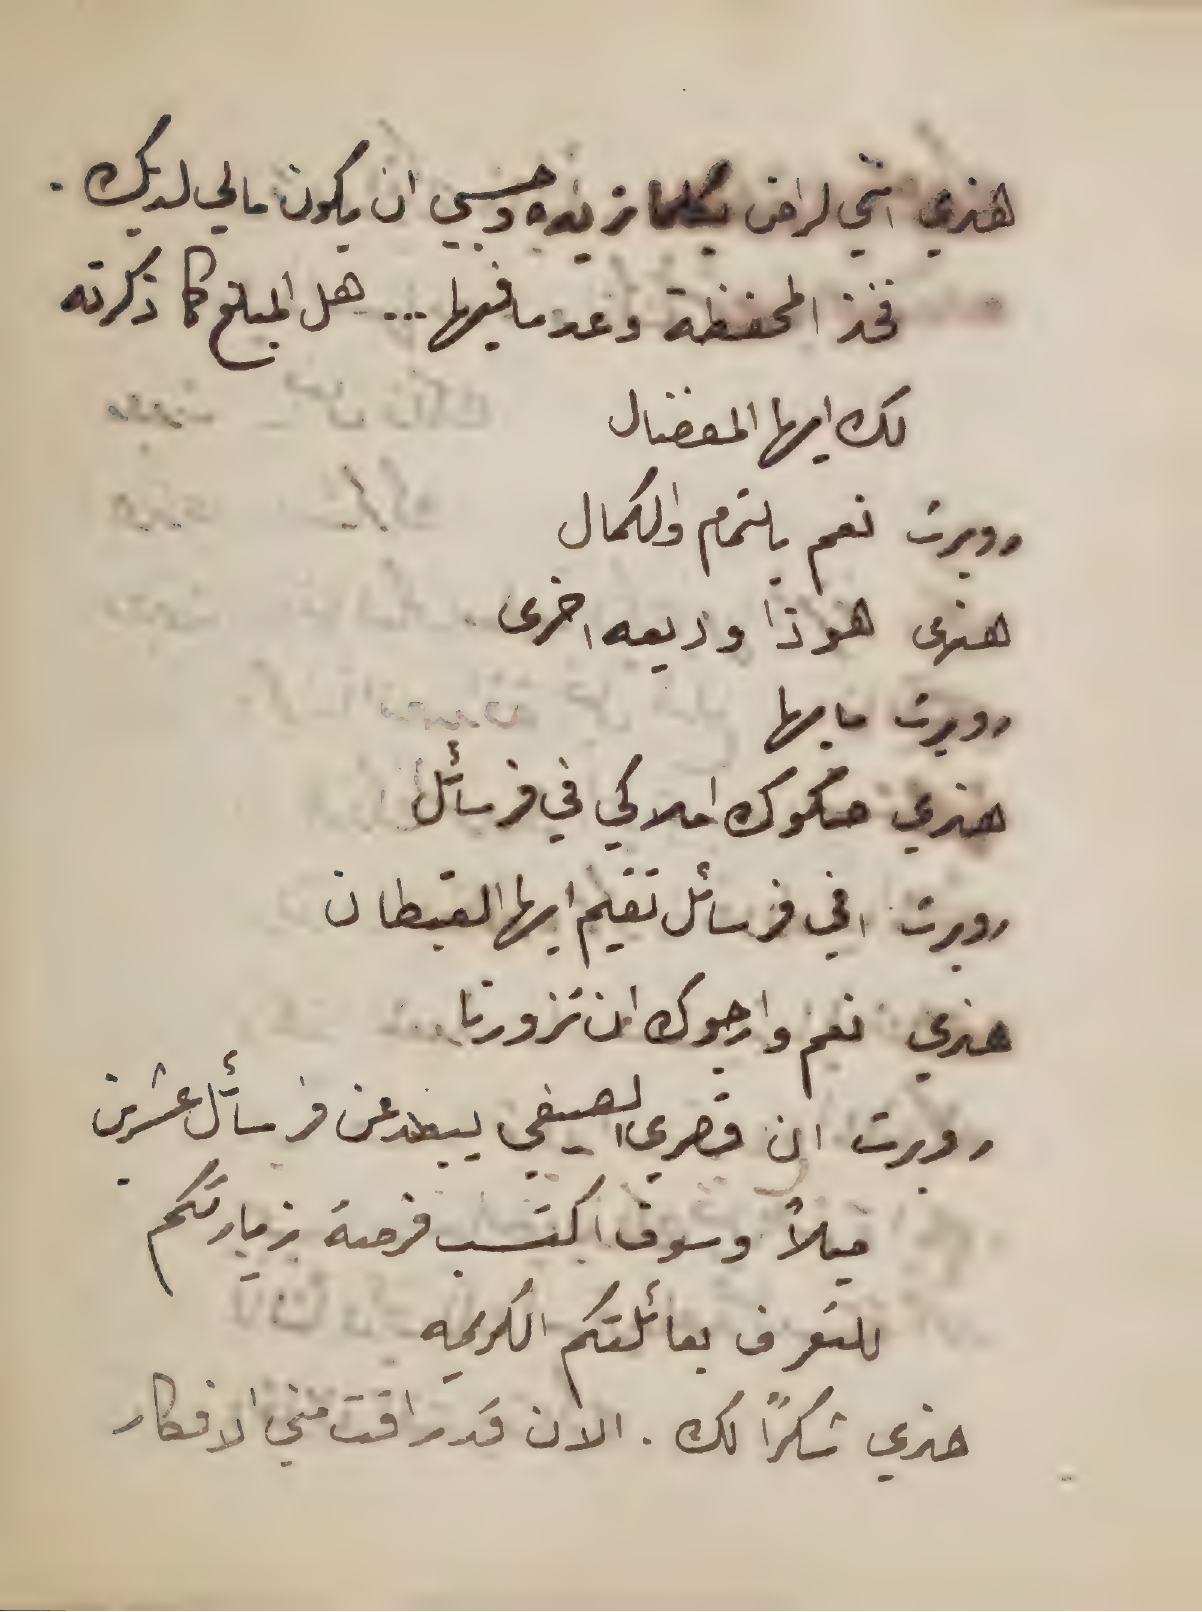 هنري انني لراض بكلما تريده وحسبي ان يكون مالي لديك .
فخذ المحفظة وعد ما فيها ... هل المبلغ كما ذكرته
لك ايها المفضال
روبرت نعم بالتمام والكمال
هنري هوذا وديعه اخرى
روبرت ما بها
هنري صكوك املاكي في فرسائل
روبرت افي فرسائل تقيم ايها القبطان
هنري نعم وارجوك ان تزورنا
روبرت ان قصري الصيفي يبعد عن فرسائل عشرين
ميلاً وسوف اكتسب فرصة بزيارتكم
للتعرف بعائلتكم الكريمه
هنري شكراً لك . الان قد راقت مني الافكار